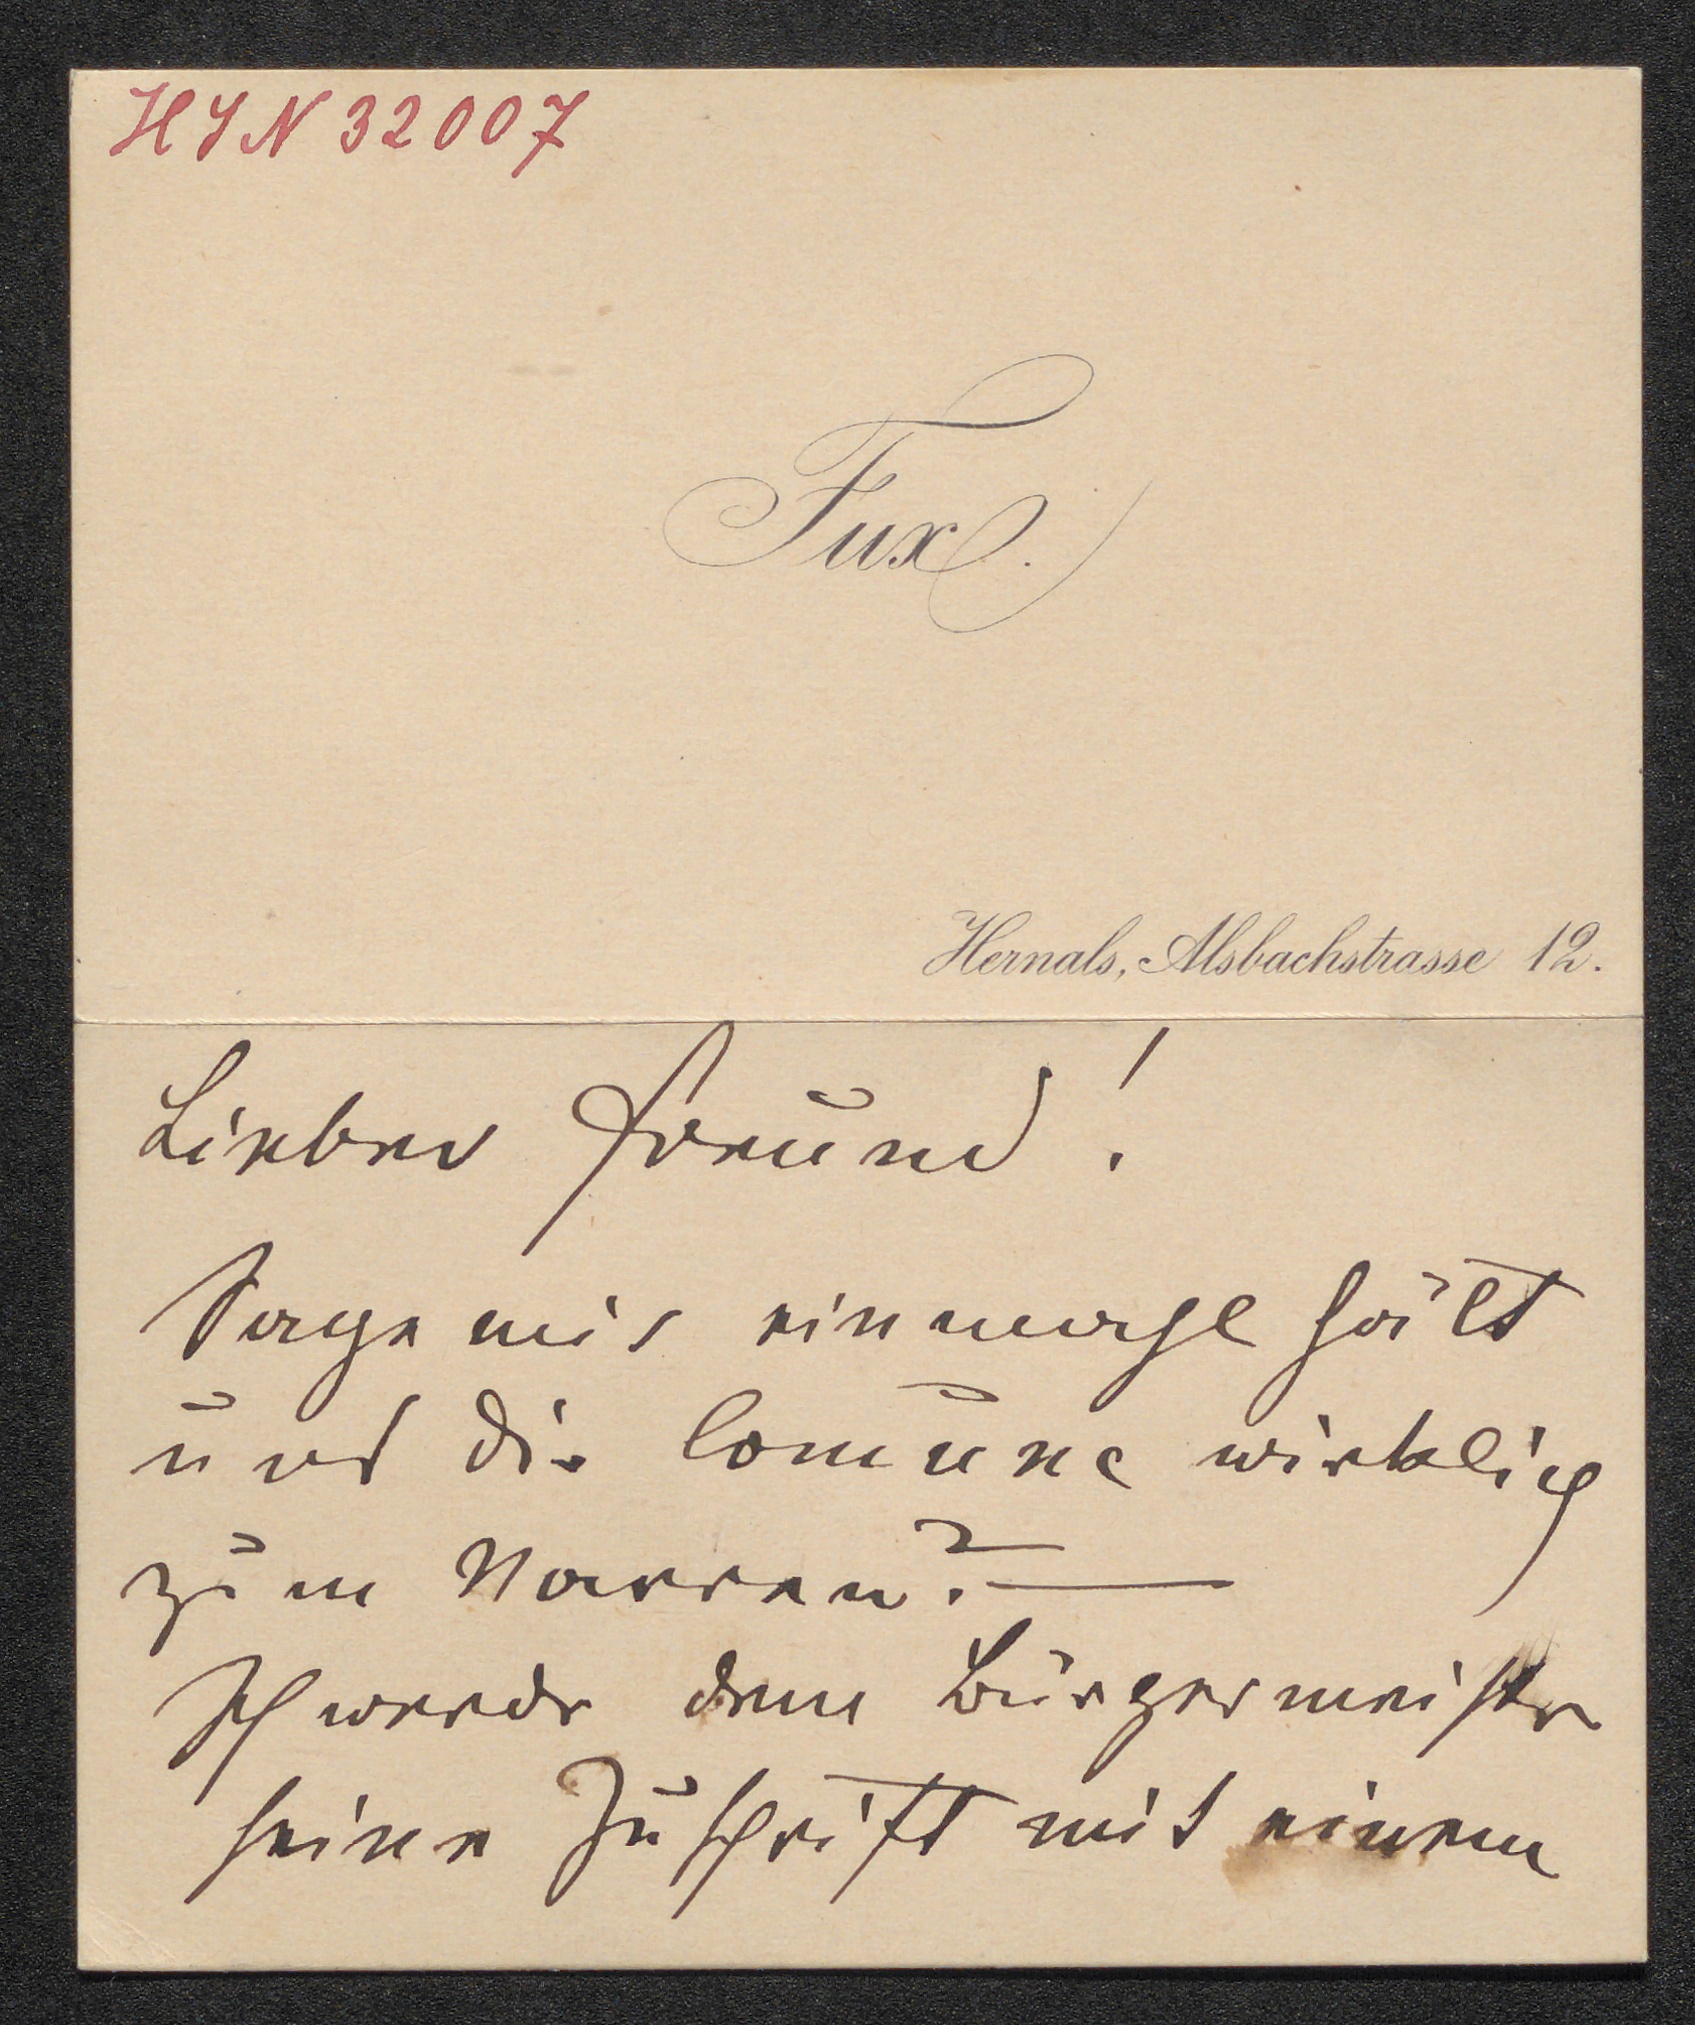 HIN 32007
Fux.
Hernals, Alsbachstrasse 12.
Lieber Freund!
Sage mir einmahl hält
uns die Comune wirklich
zum Narren? —
Ich werde dem Bürgermeister
seine Zuschrift mit einem